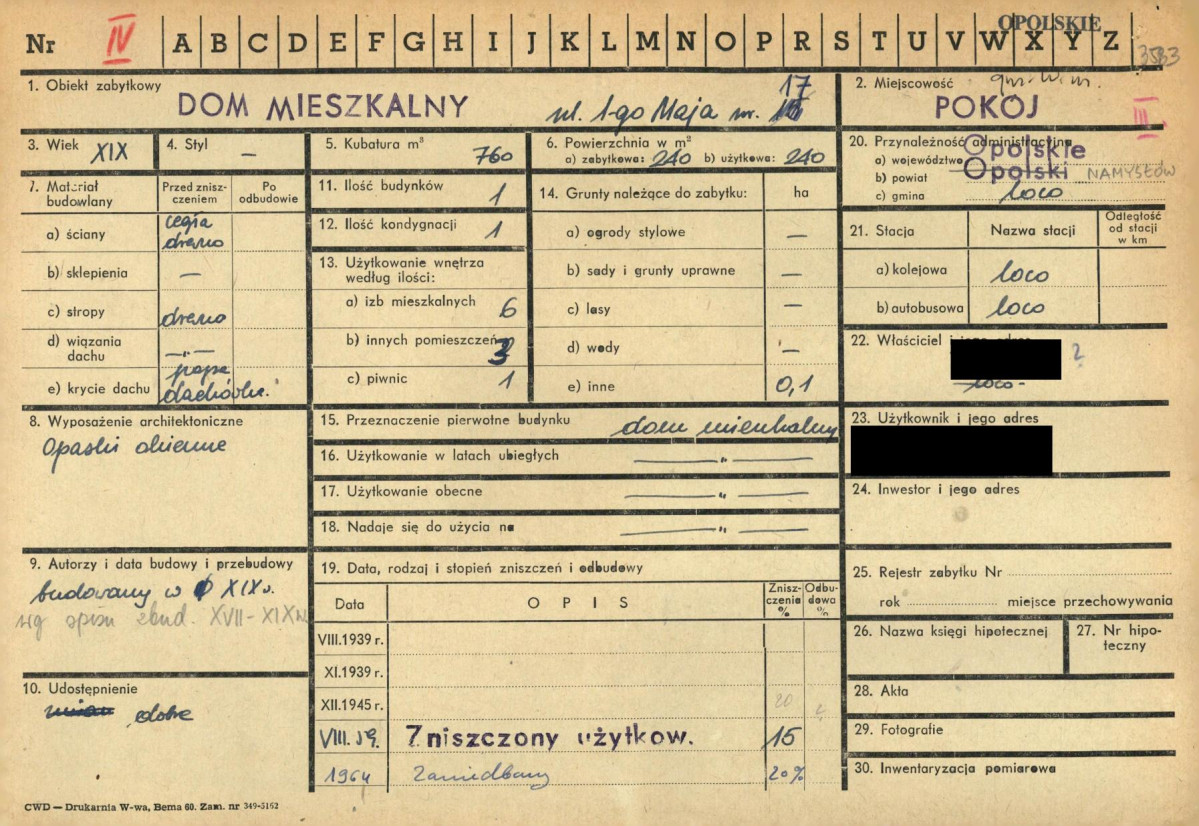 OPOLSKIE
Nr IV A B C D E F G H I J K L M N O P R S T U V W X Y Z
3533
1. Obiekt zabytkowy
DOM MIESZKALNY ul. 1-go Maja nr. 17
2. Miejscowość
POKÓJ
III
3. Wiek XIX
4. Styl —
5. Kubatura m³ 760
6. Powierzchnia w m²
a) zabytkowa: 240 b) użytkowa: 240
20. Przynależność administracyjna
a) województwo Opolskie
b) powiat Opolski NAMYSŁÓW
c) gmina loco
7. Materiał budowlany
Przed zniszczeniem
Po odbudowie
a) ściany cegła drewno
b) sklepienia —
c) stropy drewno
d) wiązania dachu —„—
e) krycie dachu papa dachówka
11. Ilość budynków 1
12. Ilość kondygnacji 1
13. Użytkowanie wnętrza według ilości:
a) izb mieszkalnych 6
b) innych pomieszczeń 3
c) piwnic 1
14. Grunty należące do zabytku: ha
a) ogrody stylowe —
b) sady i grunty uprawne —
c) lasy —
d) wody —
e) inne 0,1
21. Stacja
Nazwa stacji
Odległość od stacji w km
a) kolejowa loco
b) autobusowa loco
22. Właściciel i jego adres
?
loco
23. Użytkownik i jego adres
24. Inwestor i jego adres
8. Wyposażenie architektoniczne
Opaski okienne
15. Przeznaczenie pierwotne budynku dom mieszkalny
16. Użytkowanie w latach ubiegłych —„—
17. Użytkowanie obecne —„—
18. Nadaje się do użycia na —„—
9. Autorzy i data budowy i przebudowy
budowany w XIX w.
wg spisu zbud. XVII-XIX w.
10. Udostępnienie
dobre
19. Data, rodzaj i stopień zniszczeń i odbudowy
Data
OPIS
Zniszczenia %
Odbudowa %
VIII.1939 r.
XI.1939 r.
XII.1945 r. 20 ?
VIII.59. Zniszczony użytkow. 15
1964 Zaniedbany 20%
25. Rejestr zabytku Nr
rok miejsce przechowywania
26. Nazwa księgi hipotecznej
27. Nr hipoteczny
28. Akta
29. Fotografie
30. Inwentaryzacja pomiarowa
CWD — Drukarnia W-wa, Bema 60. Zam. nr 349-5162